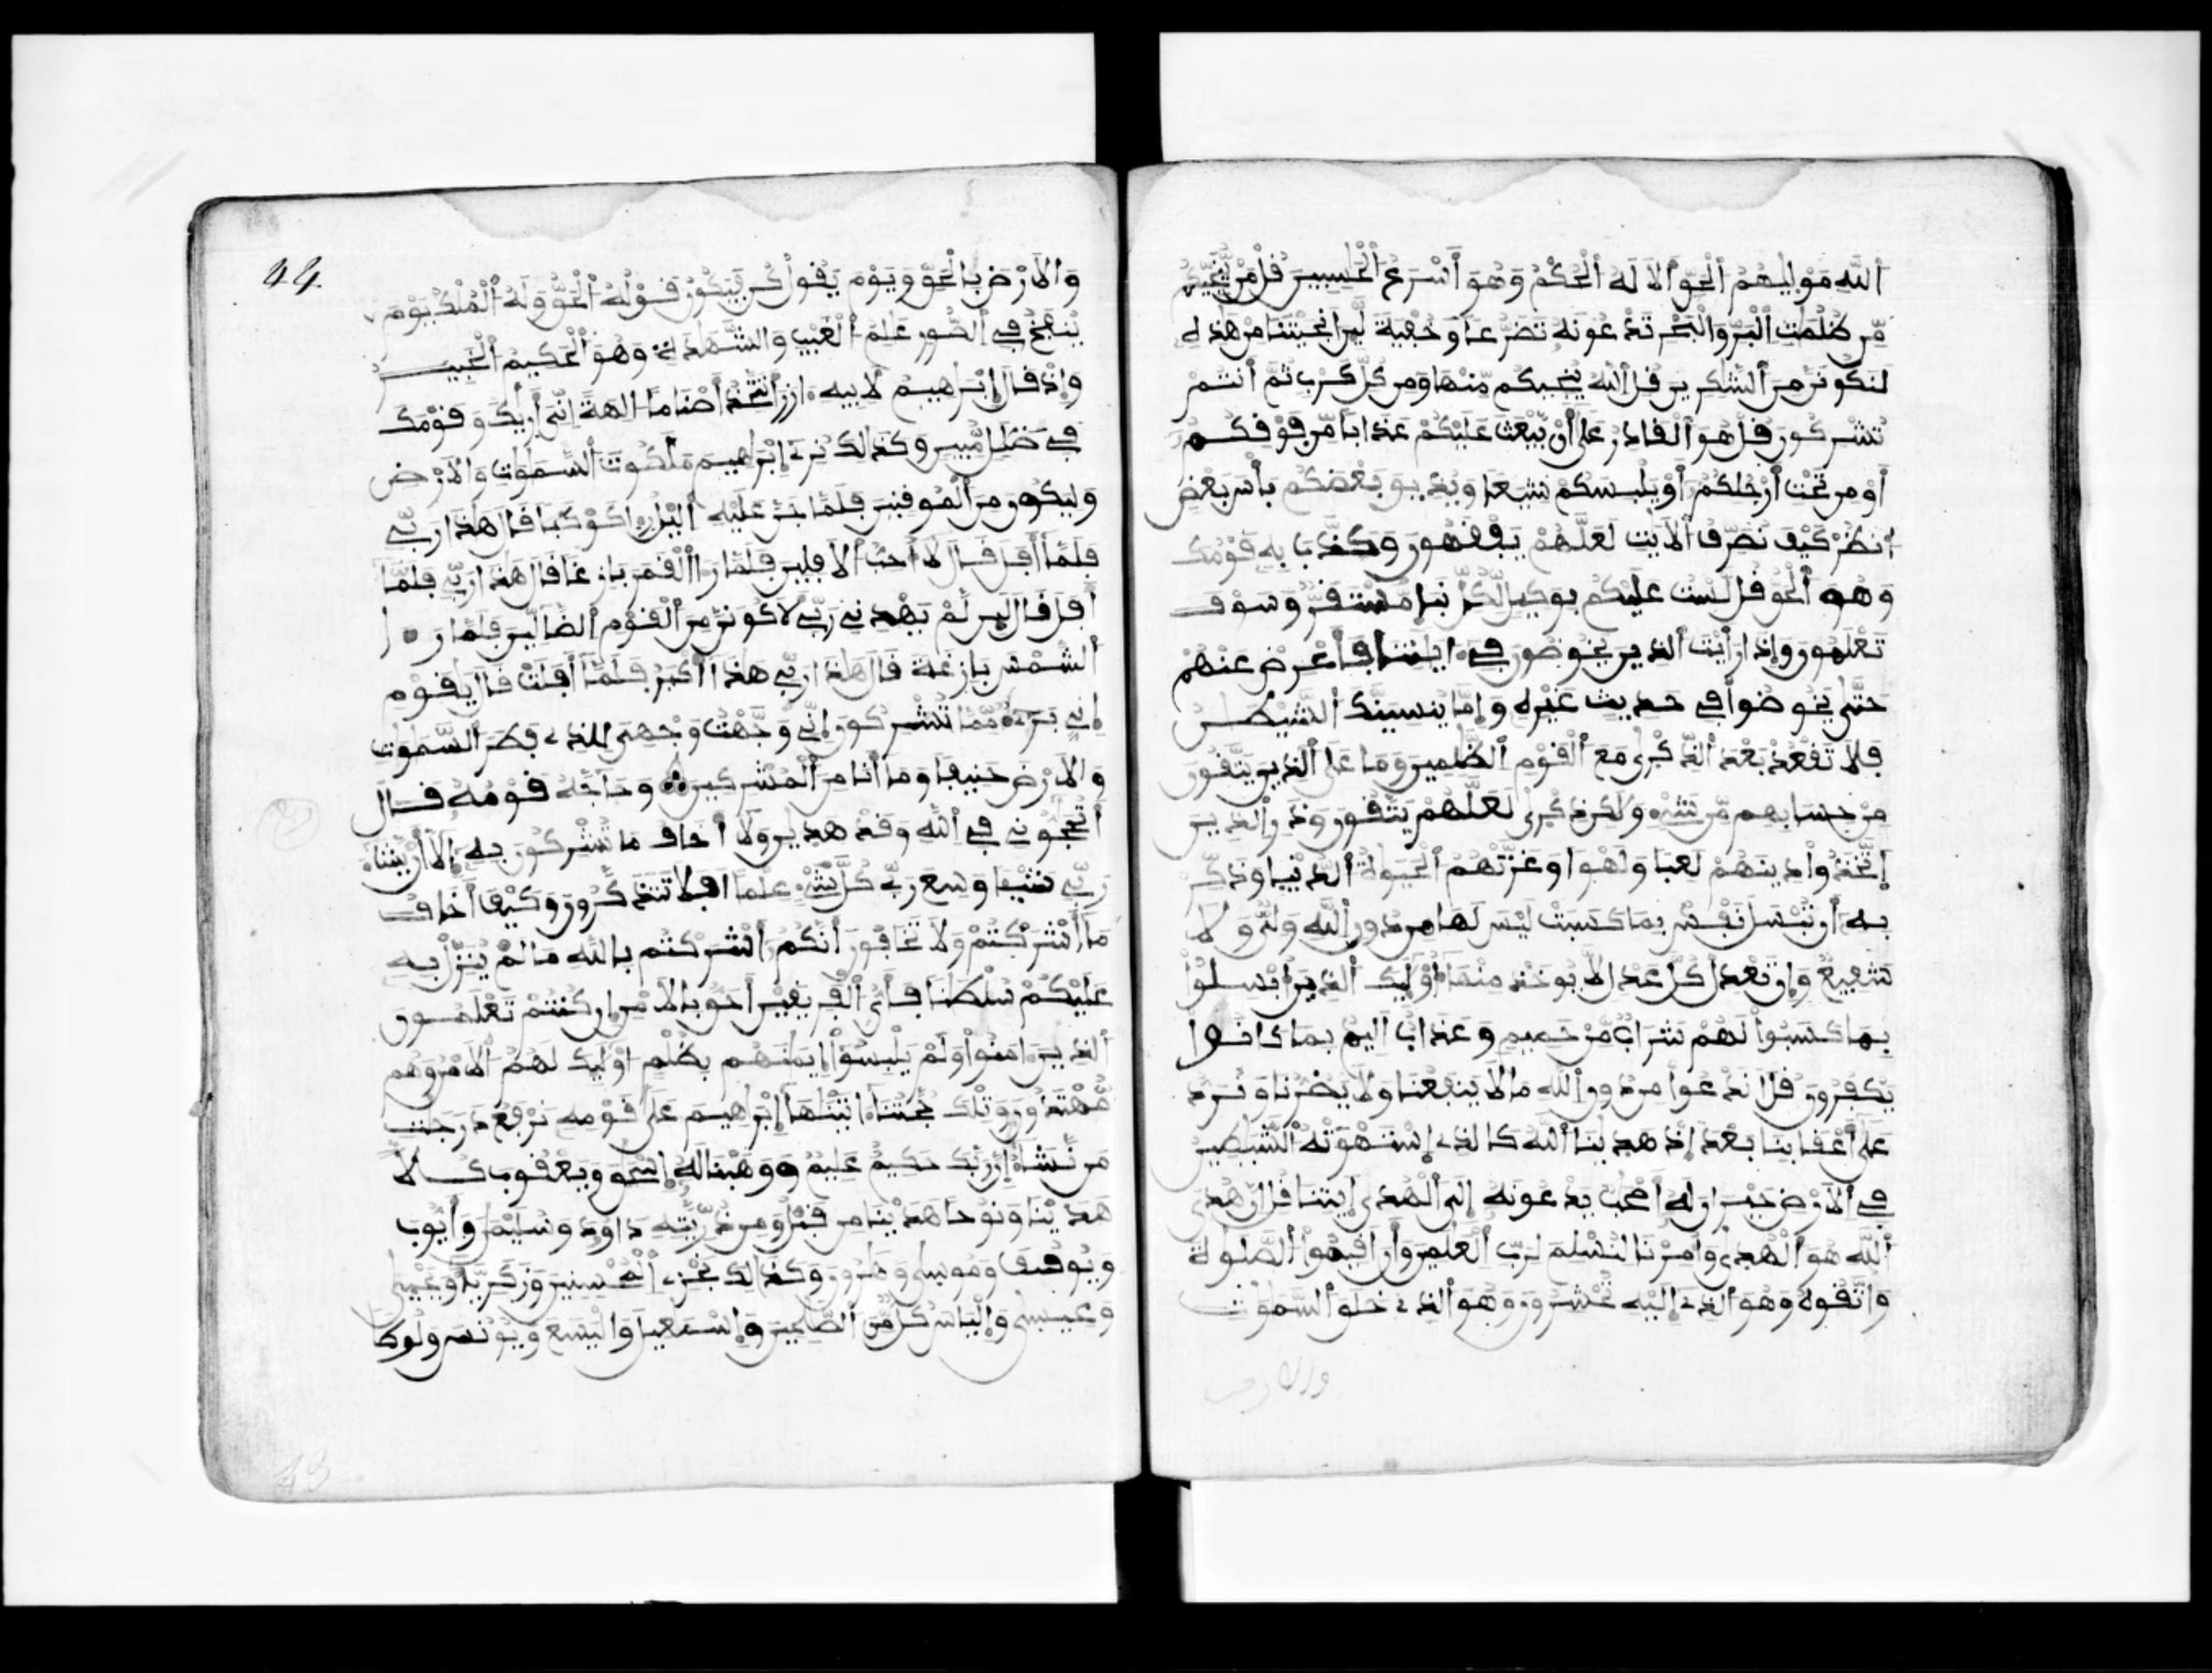 اللَّهِ مَوْلَيٰهُمُ الْحَقِّ أَلَا لَهُ الْحُكْمُ وَهُوَ أَسْرَعُ الْحَٰسِبِينَ قُلْ مَنْ يُّنَجِّيكُم
مِّن ظُلُمَٰتِ الْبَرِّ وَالْبَحْرِ تَدْعُونَهُ تَضَرُّعًا وَخُفْيَةً لَّئِنْ أَنجَيْتَنَا مِنْ هَٰذِهِ
لَنَكُونَنَّ مِنَ الشَّٰكِرِينَ قُلِ اللَّهُ يُنجِيكُم مِّنْهَا وَمِن كُلِّ كَرْبٍ ثُمَّ أَنتُمْ
تُشْرِكُونَ قُلْ هُوَ الْقَادِرُ عَلَىٰ أَنْ يَّبْعَثَ عَلَيْكُمْ عَذَابًا مِّن فَوْقِكُمْ
أَوْ مِن تَحْتِ أَرْجُلِكُمْ أَوْ يَلْبِسَكُمْ شِيَعًا وَيُذِيقَ بَعْضَكُم بَأْسَ بَعْضٍ
انظُرْ كَيْفَ نُصَرِّفُ الْأَيَٰتِ لَعَلَّهُمْ يَفْقَهُونَ وَكَذَّبَ بِهِ قَوْمُكَ
وَهُوَ الْحَقُّ قُل لَّسْتُ عَلَيْكُم بِوَكِيلٍ لِّكُلِّ نَبَإٍ مُّسْتَقَرٌّ وَسَوْفَ
تَعْلَمُونَ وَإِذَا رَأَيْتَ الَّذِينَ يَخُوضُونَ فِي ءَايَٰتِنَا فَأَعْرِضْ عَنْهُمْ
حَتَّىٰ يَخُوضُوا فِي حَدِيثٍ غَيْرِهِ وَإِمَّا يُنسِيَنَّكَ الشَّيْطَٰنُ
فَلَا تَقْعُدْ بَعْدَ الذِّكْرَىٰ مَعَ الْقَوْمِ الظَّٰلِمِينَ وَمَا عَلَى الَّذِينَ يَتَّقُونَ
مِنْ حِسَابِهِم مِّن شَيْءٍ وَلَٰكِن ذِكْرَىٰ لَعَلَّهُمْ يَتَّقُونَ وَذَرِ الَّذِينَ
اتَّخَذُوا دِينَهُمْ لَعِبًا وَلَهْوًا وَغَرَّتْهُمُ الْحَيَوٰةُ الدُّنْيَا وَذَكِّرْ
بِهِ أَن تُبْسَلَ نَفْسٌ بِمَا كَسَبَتْ لَيْسَ لَهَا مِن دُونِ اللَّهِ وَلِيٌّ وَلَا
شَفِيعٌ وَإِن تَعْدِلْ كُلَّ عَدْلٍ لَّا يُوخَذْ مِنْهَا أُوْلَٰئِكَ الَّذِينَ أُبْسِلُوا
بِمَا كَسَبُوا لَهُمْ شَرَابٌ مِّنْ حَمِيمٍ وَعَذَابٌ أَلِيمٌ بِمَا كَانُوا
يَكْفُرُونَ قُلْ أَنَدْعُوا مِن دُونِ اللَّهِ مَا لَا يَنفَعُنَا وَلَا يَضُرُّنَا وَنُرَدُّ
عَلَىٰ أَعْقَابِنَا بَعْدَ إِذْ هَدَيٰنَا اللَّهُ كَالَّذِي اسْتَهْوَتْهُ الشَّيَٰطِينُ
فِي الْأَرْضِ حَيْرَانَ لَهُ أَصْحَٰبٌ يَدْعُونَهُ إِلَى الْهُدَى ايتِنَا قُلْ إِنَّ هُدَى
اللَّهِ هُوَ الْهُدَىٰ وَأُمِرْنَا لِنُسْلِمَ لِرَبِّ الْعَٰلَمِينَ وَأَنْ أَقِيمُوا الصَّلَوٰةَ
وَاتَّقُوهُ وَهُوَ الَّذِي إِلَيْهِ تُحْشَرُونَ وَهُوَ الَّذِي خَلَقَ السَّمَٰوَٰتِ
والارض
44
وَالْأَرْضَ بِالْحَقِّ وَيَوْمَ يَقُولُ كُن فَيَكُونُ قَوْلُهُ الْحَقُّ وَلَهُ الْمُلْكُ يَوْمَ
يُنفَخُ فِي الصُّورِ عَٰلِمُ الْغَيْبِ وَالشَّهَٰدَةِ وَهُوَ الْحَكِيمُ الْخَبِيرُ
وَإِذْ قَالَ إِبْرَٰهِيمُ لِأَبِيهِ ءَازَرَ أَتَتَّخِذُ أَصْنَامًا ءَالِهَةً إِنِّي أَرَيٰكَ وَقَوْمَكَ
فِي ضَلَٰلٍ مُّبِينٍ وَكَذَٰلِكَ نُرِي إِبْرَٰهِيمَ مَلَكُوتَ السَّمَٰوَٰتِ وَالْأَرْضِ
وَلِيَكُونَ مِنَ الْمُوقِنِينَ فَلَمَّا جَنَّ عَلَيْهِ الَّيْلُ رَءَا كَوْكَبًا قَالَ هَٰذَا رَبِّي
فَلَمَّا أَفَلَ قَالَ لَا أُحِبُّ الْأَفِلِينَ فَلَمَّا رَءَا الْقَمَرَ بَازِغًا قَالَ هَٰذَا رَبِّي فَلَمَّا
أَفَلَ قَالَ لَئِن لَّمْ يَهْدِنِي رَبِّي لَأَكُونَنَّ مِنَ الْقَوْمِ الضَّالِّينَ فَلَمَّا رَءَا
الشَّمْسَ بَازِغَةً قَالَ هَٰذَا رَبِّي هَٰذَا أَكْبَرُ فَلَمَّا أَفَلَتْ قَالَ يَٰقَوْمِ
إِنِّي بَرِيءٌ مِّمَّا تُشْرِكُونَ إِنِّي وَجَّهْتُ وَجْهِيَ لِلَّذِي فَطَرَ السَّمَٰوَٰتِ
وَالْأَرْضَ حَنِيفًا وَمَا أَنَا مِنَ الْمُشْرِكِينَ وَحَاجَّهُ قَوْمُهُ قَالَ
أَتُحَٰجُّونِي فِي اللَّهِ وَقَدْ هَدَيٰنِ وَلَا أَخَافُ مَا تُشْرِكُونَ بِهِ إِلَّا أَنْ يَّشَاءَ
رَبِّي شَيْئًا وَسِعَ رَبِّي كُلَّ شَيْءٍ عِلْمًا أَفَلَا تَتَذَكَّرُونَ وَكَيْفَ أَخَافُ
مَا أَشْرَكْتُمْ وَلَا تَخَافُونَ أَنَّكُمْ أَشْرَكْتُم بِاللَّهِ مَا لَمْ يُنَزِّلْ بِهِ
عَلَيْكُمْ سُلْطَٰنًا فَأَيُّ الْفَرِيقَيْنِ أَحَقُّ بِالْأَمْنِ إِن كُنتُمْ تَعْلَمُونَ
الَّذِينَ ءَامَنُوا وَلَمْ يَلْبِسُوا إِيمَٰنَهُم بِظُلْمٍ أُوْلَٰئِكَ لَهُمُ الْأَمْنُ وَهُم
مُّهْتَدُونَ وَتِلْكَ حُجَّتُنَا ءَاتَيْنَٰهَا إِبْرَٰهِيمَ عَلَىٰ قَوْمِهِ نَرْفَعُ دَرَجَٰتِ
مَن نَّشَاءُ إِنَّ رَبَّكَ حَكِيمٌ عَلِيمٌ وَوَهَبْنَا لَهُ إِسْحَٰقَ وَيَعْقُوبَ كُلًّا
هَدَيْنَا وَنُوحًا هَدَيْنَا مِن قَبْلُ وَمِن ذُرِّيَّتِهِ دَاوُدَ وَسُلَيْمَٰنَ وَأَيُّوبَ
وَيُوسُفَ وَمُوسَىٰ وَهَٰرُونَ وَكَذَٰلِكَ نَجْزِي الْمُحْسِنِينَ وَزَكَرِيَّاءَ وَيَحْيَىٰ
وَعِيسَىٰ وَإِلْيَاسَ كُلٌّ مِّنَ الصَّٰلِحِينَ وَإِسْمَٰعِيلَ وَالْيَسَعَ وَيُونُسَ وَلُوطًا
43